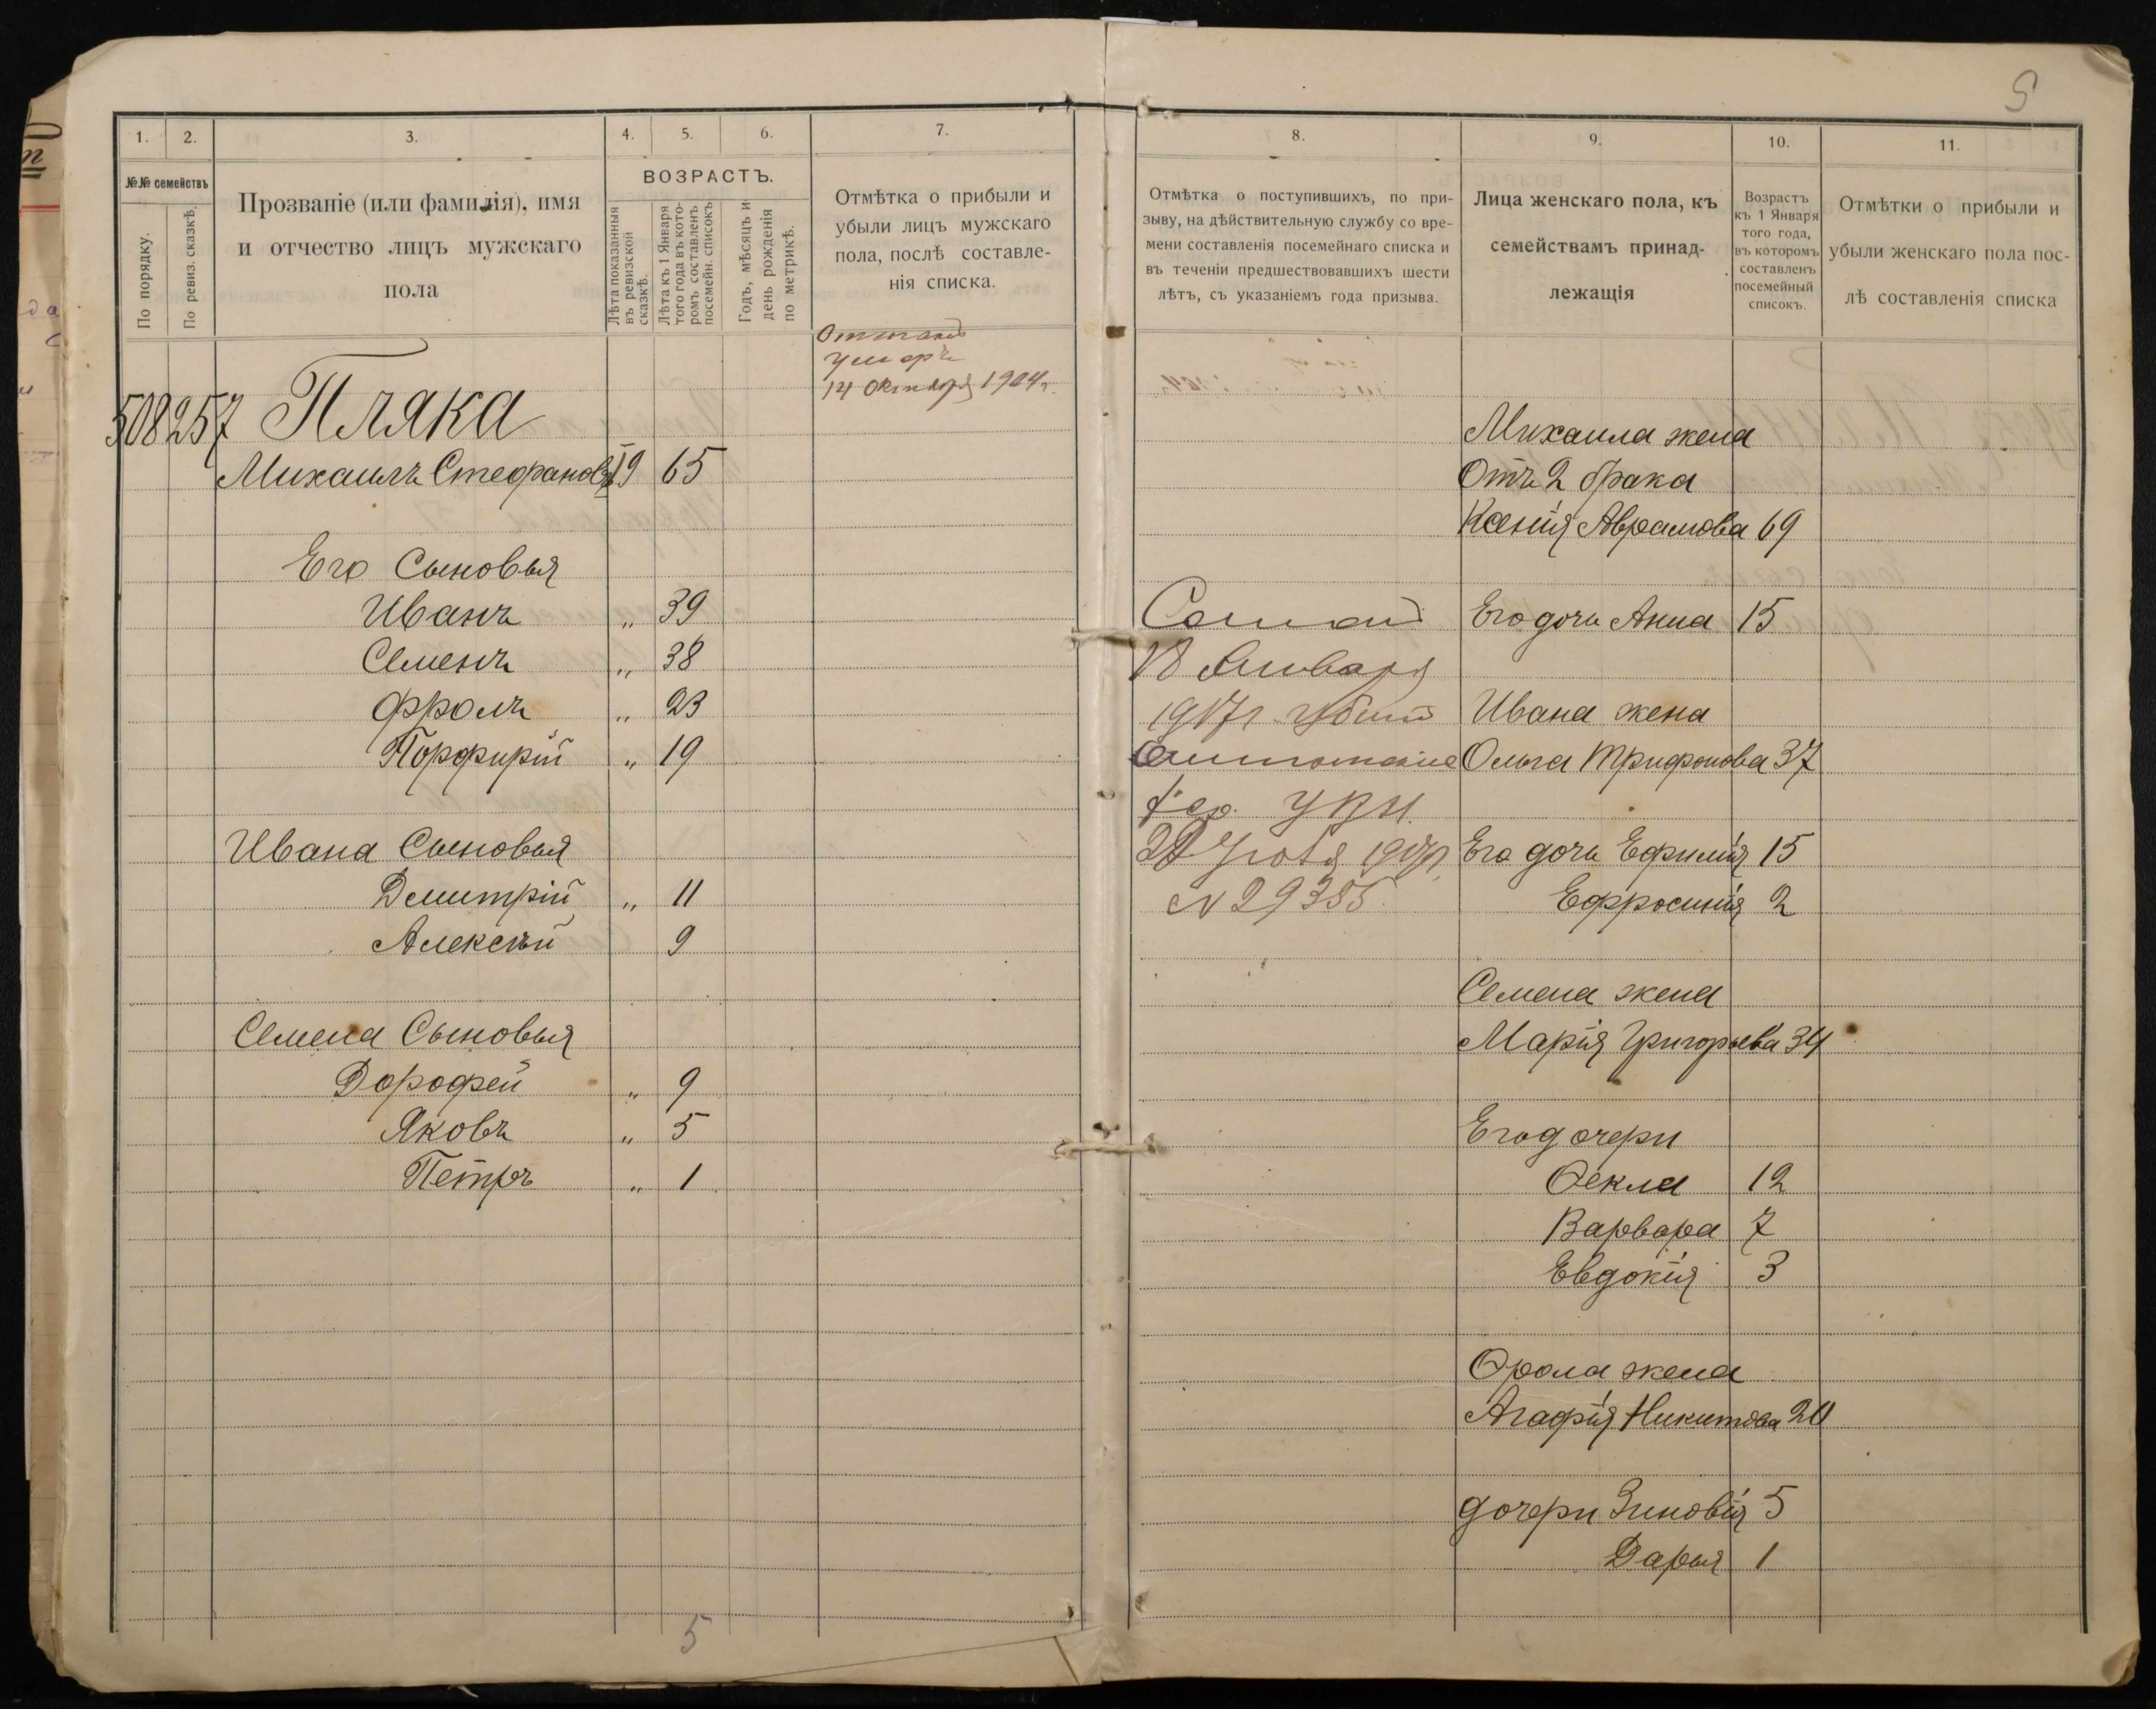 5
1.
2.
3.
4.
5.
6.
7.
№№ семействъ
По порядку.
По ревиз. сказкѣ.
Прозваніе (или фамилія), имя
и отчество лицъ мужскаго
пола
ВОЗРАСТЪ.
Лѣта показанныя
въ ревизской
сказкѣ.
Лѣта къ 1 Января
того года въ кото-
ромъ составленъ
посемейн. списокъ
Годъ, мѣсяцъ и
день рожденія
по метрикѣ.
Отмѣтка о прибыли и
убыли лицъ мужскаго
пола, послѣ составле-
нія списка.
умеръ
14 Октября 1904г.
508 257 Пляка
Михаилъ Стефановъ 19 65
Его Сыновья
Иванъ „ 39
Семенъ „ 38
Фролъ „ 23
Порфирій „ 19
Ивана Сыновья
Дмитрій „ 11
Алексѣй 9
Семена Сыновья
Дорофей „ 9
Яковъ „ 5
Петръ „ 1
5
8.
9.
10.
11.
Отмѣтка о поступившихъ, по при-
зыву, на дѣйствительную службу со вре-
мени составленія посемейнаго списка и
въ теченіи предшествовавшихъ шести
лѣтъ, съ указаніемъ года призыва.
Лица женскаго пола, къ
семействамъ принад-
лежащія
Возрастъ
къ 1 Января
того года,
въ которомъ
составленъ
посемейный
списокъ.
Отмѣтки о прибыли и
убыли женскаго пола пос-
лѣ составленія списка
18 Января
1917г.
№ 29355.
Михаила жена
Отъ 2 брака
Ксенія Аврамова 69
Его дочь Анна 15
Ивана жена
Ольга Трифонова 37
Его дочь Ефимія 15
Ефросинія 2
Семена жена
Марія Григорьева 34
Его дочери
Ѳекла 12
Варвара 7
Евдокія 3
Фрола жена
Агафія Никитова 20
дочери Зиновія 5
Дарья 1